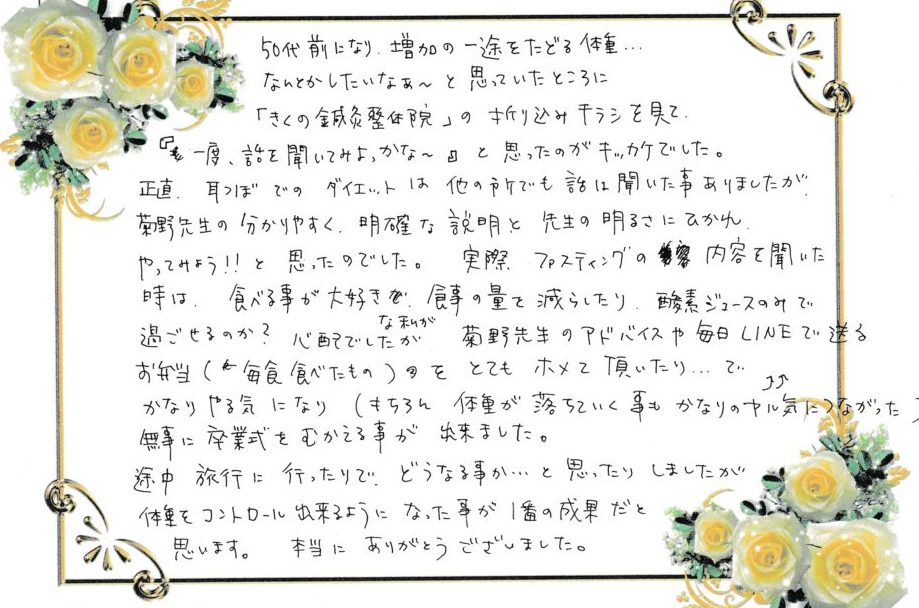 50代前になり、増加の一途をたどる体重…
なんとかしたいなぁ〜と思っていたところに
「きくの鍼灸整体院」の折り込みチラシを見て、
『一度、話を聞いてみよっかな〜』と思ったのがキッカケでした。
正直、耳つぼでのダイエットは他の所でも話は聞いた事ありましたが、
菊野先生の分かりやすく、明確な説明と先生の明るさにひかれ、
やってみよう!!と思ったのでした。実際、ファスティングの内容を聞いた
時は、食べる事が大好きな私が、食事の量を減らしたり、酸素ジュースのみで
過ごせるのか?心配でしたが菊野先生のアドバイスや毎日LINEで送る
お弁当(毎食食べたもの)をとてもホメて頂いたり…で
かなりやる気になり(もちろん体重が落ちていく事もかなりのヤル気につながった↑↑)
無事に卒業式をむかえる事が出来ました。
途中旅行に行ったりで、どうなる事か…と思ったりしましたが
体重をコントロール出来るようになった事が1番の成果だと
思います。本当にありがとうございました。